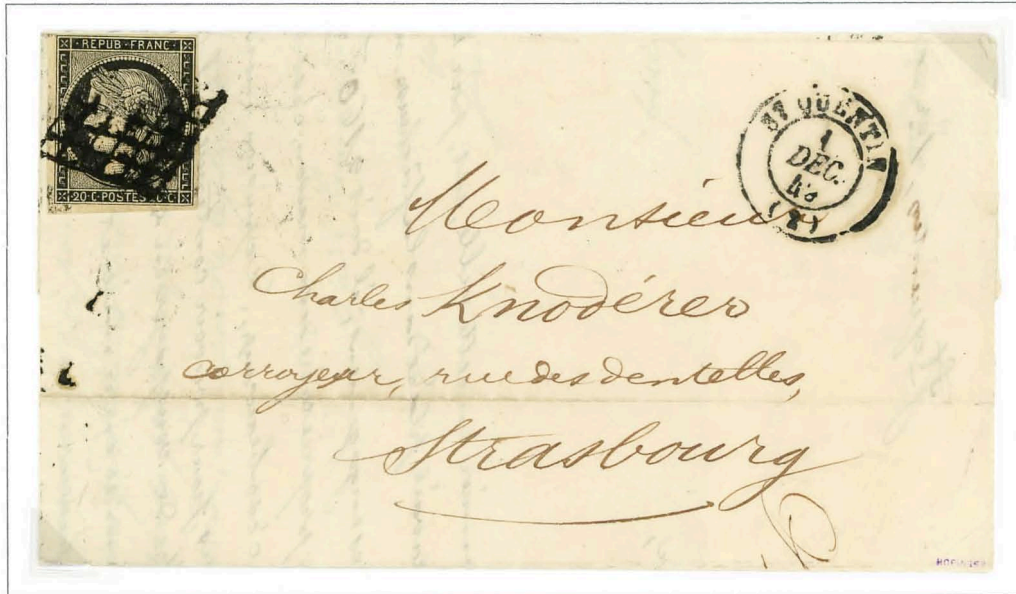 REPUB·FRANC·
20·C·POSTES·20·C·
ST QUENTIN
1
DEC.
(2)
Monsieur
Charles Knodérer
corroyeur, rue des dentelles,
Strasbourg